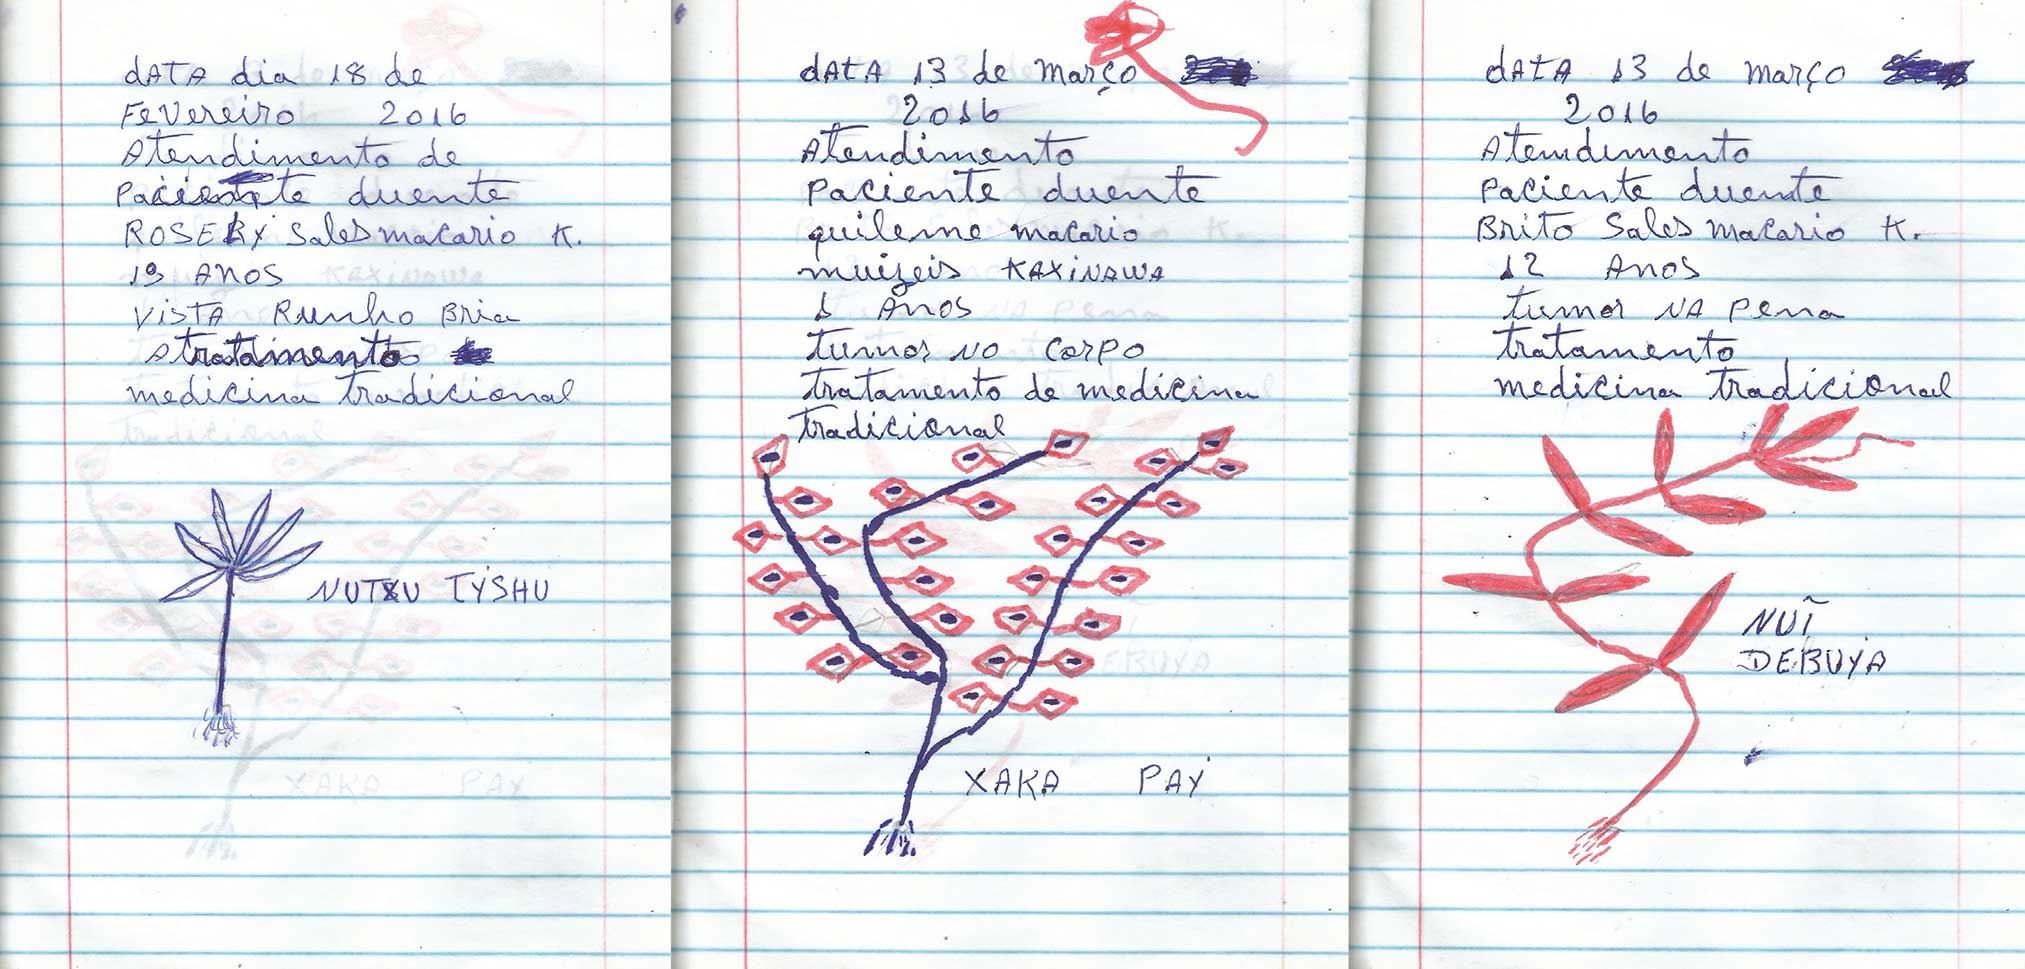 dATA dia 18 de
Fevereiro 2016
Atendimento de
Paciente duente
Sales macario K.
19 ANOS
VISTA Runho Bria
tratamento
medicina tradicional
NUTXU IYSHU
dATA 13 de março
2016
Atendimento
Paciente duente
quileme macario
muizeis KAXINAWA
1 ANOS
tumor no corpo
tratamento de medicina
tradicional
XAKA PAY
dATA 13 de março
2016
Atendimento
Paciente duente
Brito Sales macario K.
12 ANOS
tumor NA pena
tratamento
medicina tradicional
NUĨ
DEBUYA